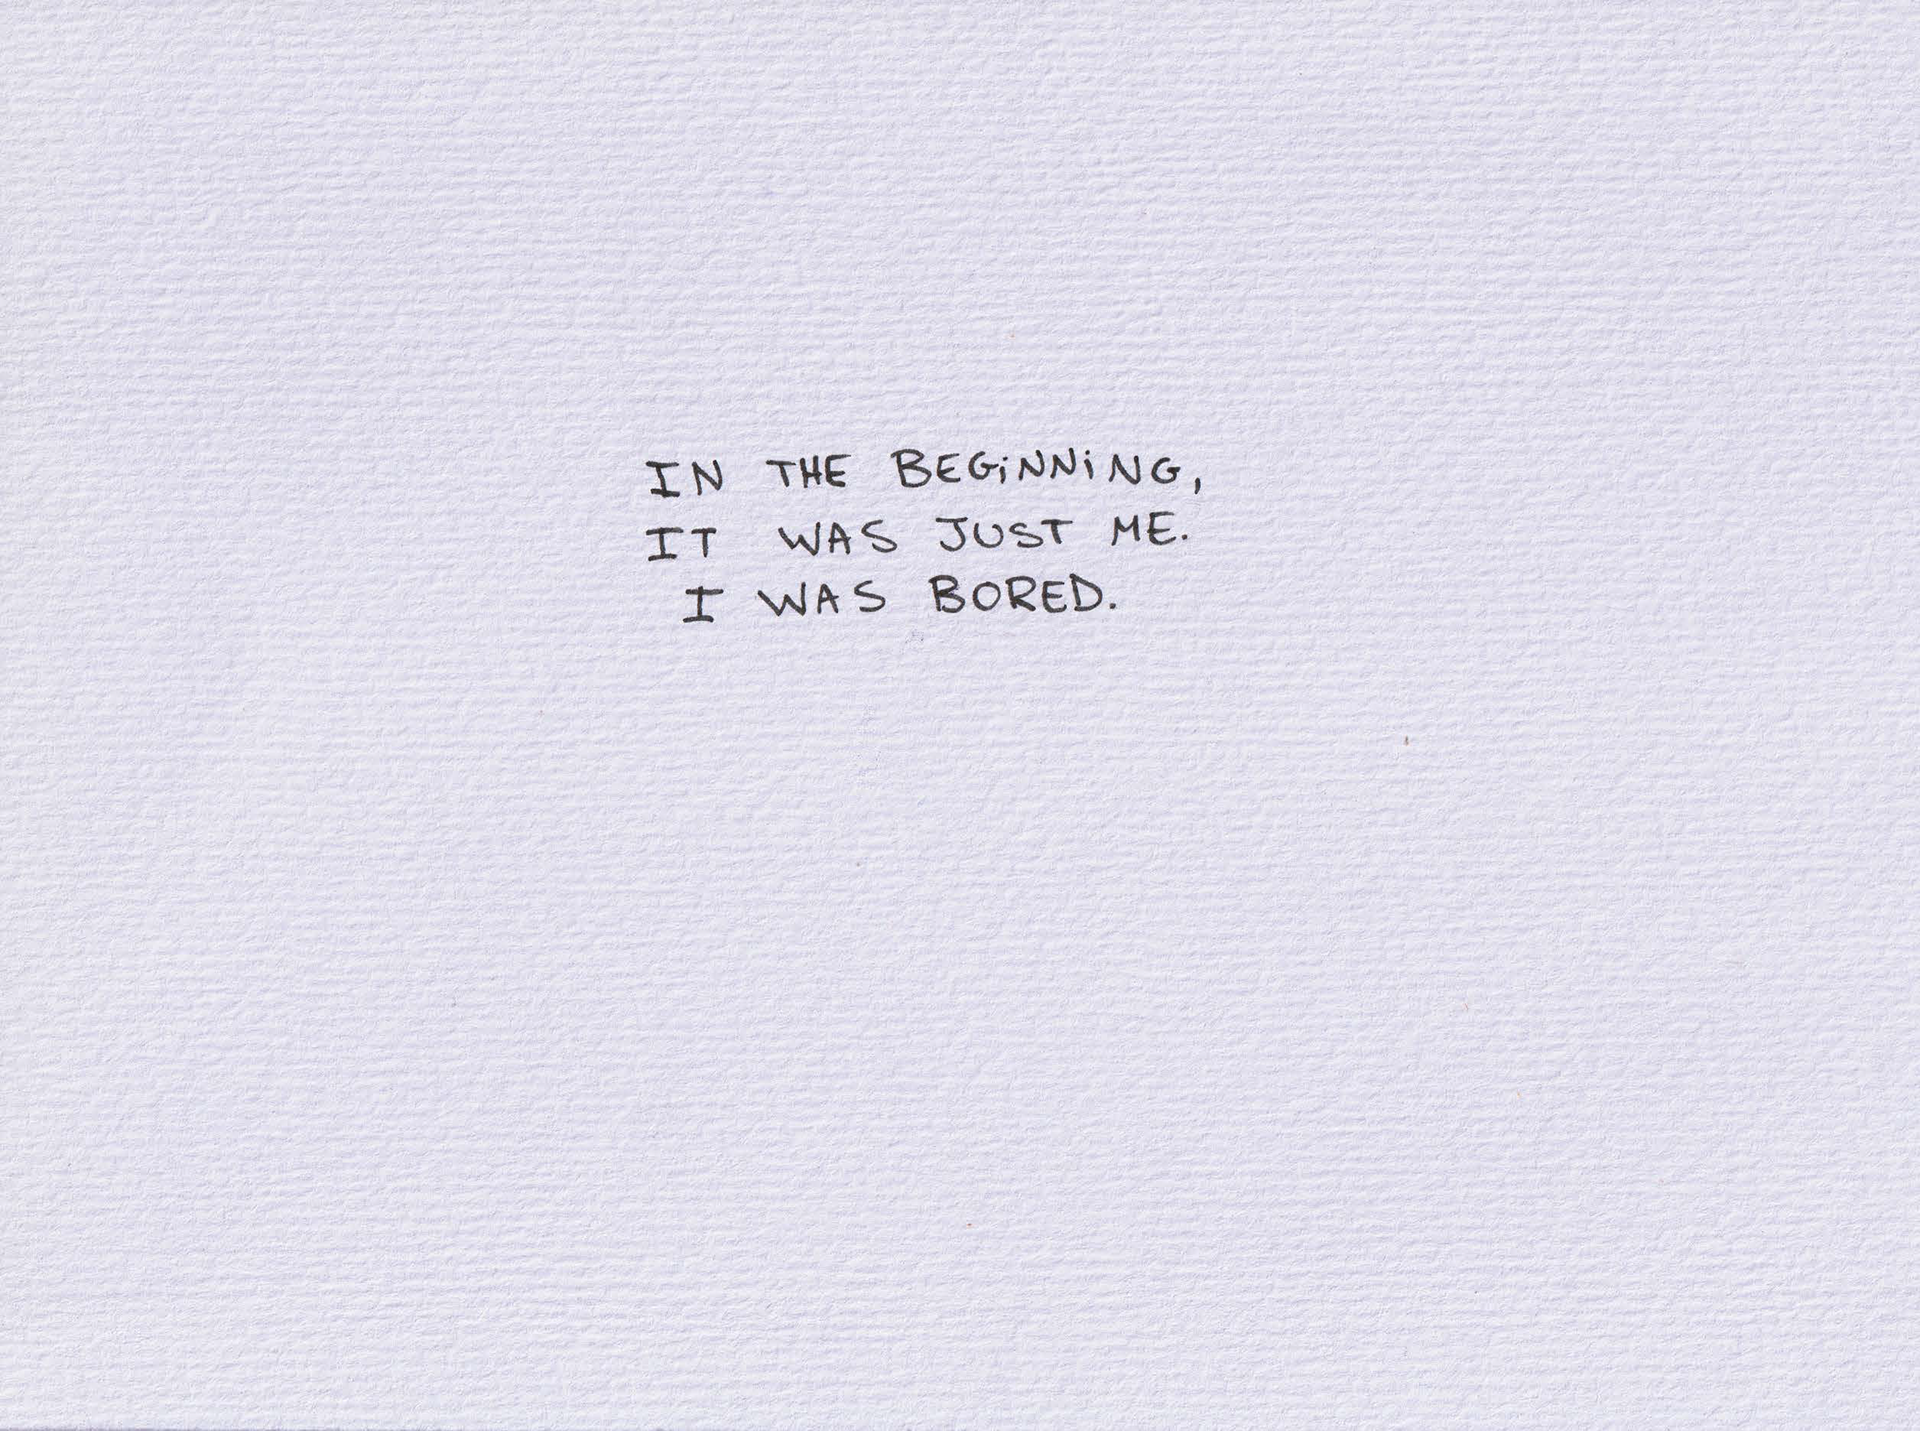 IN THE BEGiNNiNG,
IT WAS JUST ME.
I WAS BORED.